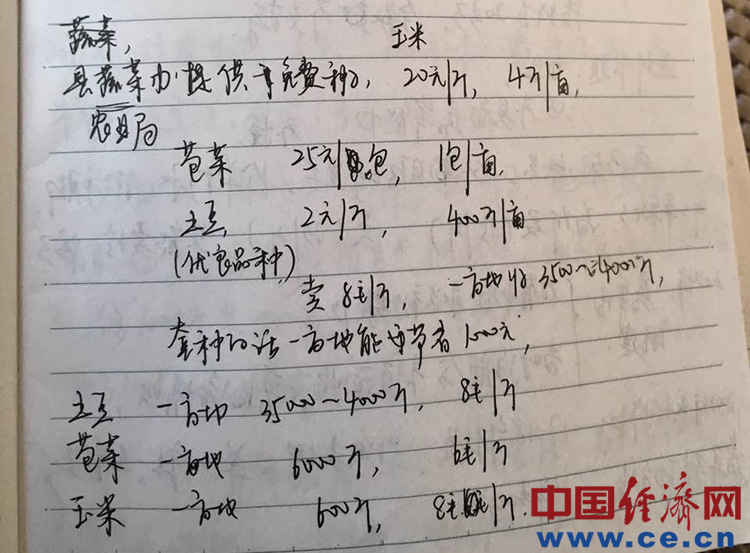 蔬菜, 玉米
县蔬菜办提供了免费种子, 20元/斤, 4斤/亩,
农业局
苞菜 25元/包, 1包/亩,
土豆 2元/斤, 400斤/亩
(优良品种)
卖8毛/斤, 一亩地收3500~4000斤,
套种的话一亩地能够节省1000元,
土豆 一亩地 3500~4000斤, 8毛/斤
苞菜 一亩地 6000斤, 6毛/斤
玉米 一亩地 600斤, 8毛/斤.
中国经济网
www.ce.cn